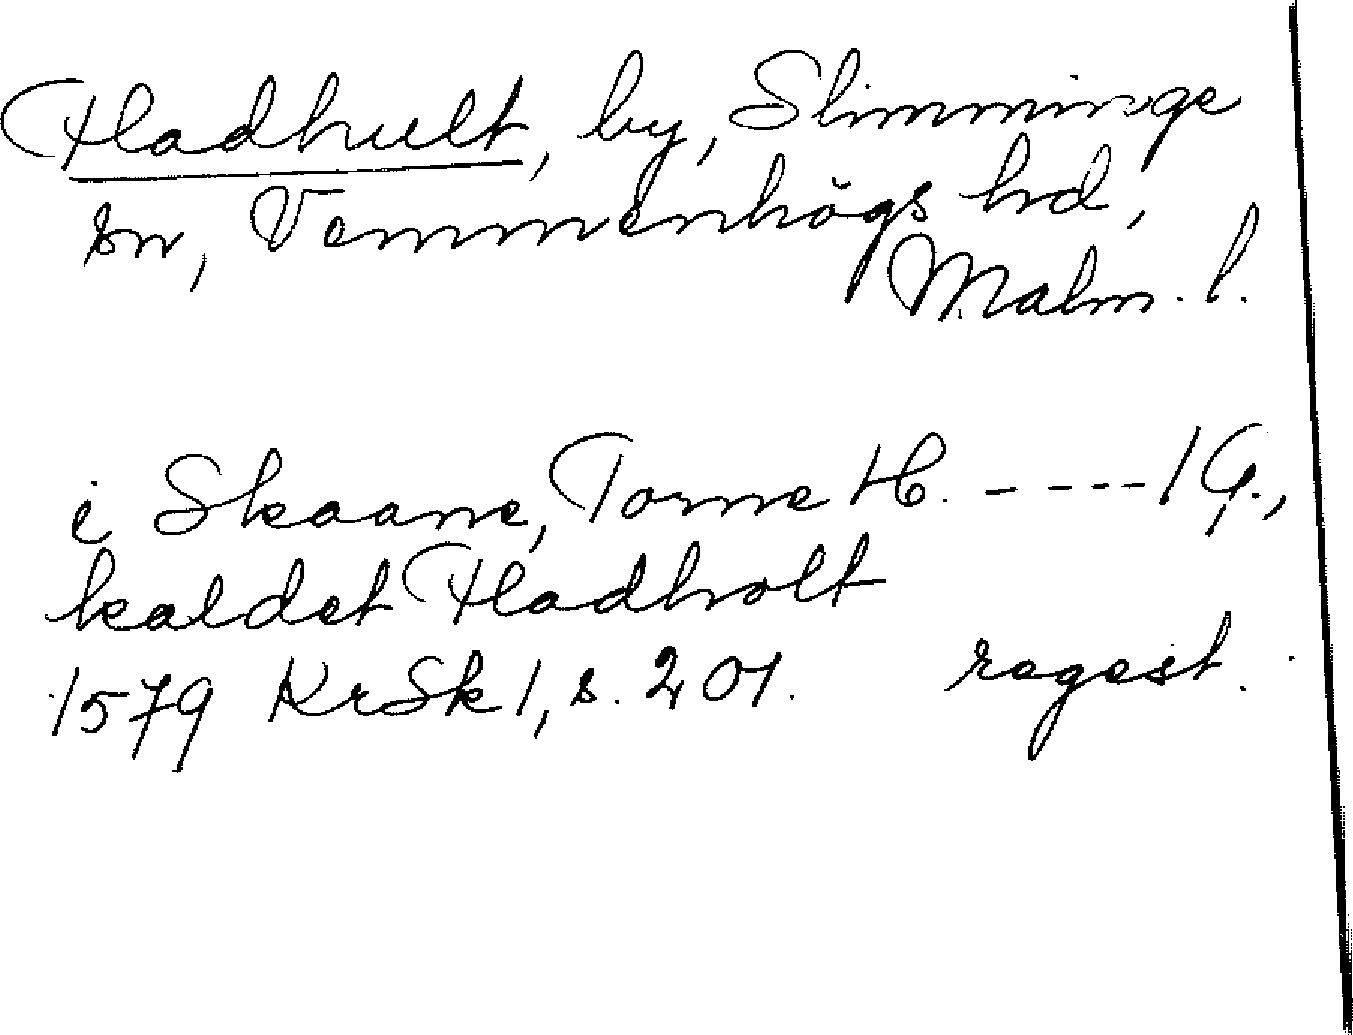 Hadhult, by, Slimminge
sn, Vemmenhögs hd,
Malm. l.
i Skaane, Torne H. ---- 1 G.,
kaldet Hadholt
1579 KrSk 1, s. 201. regest.